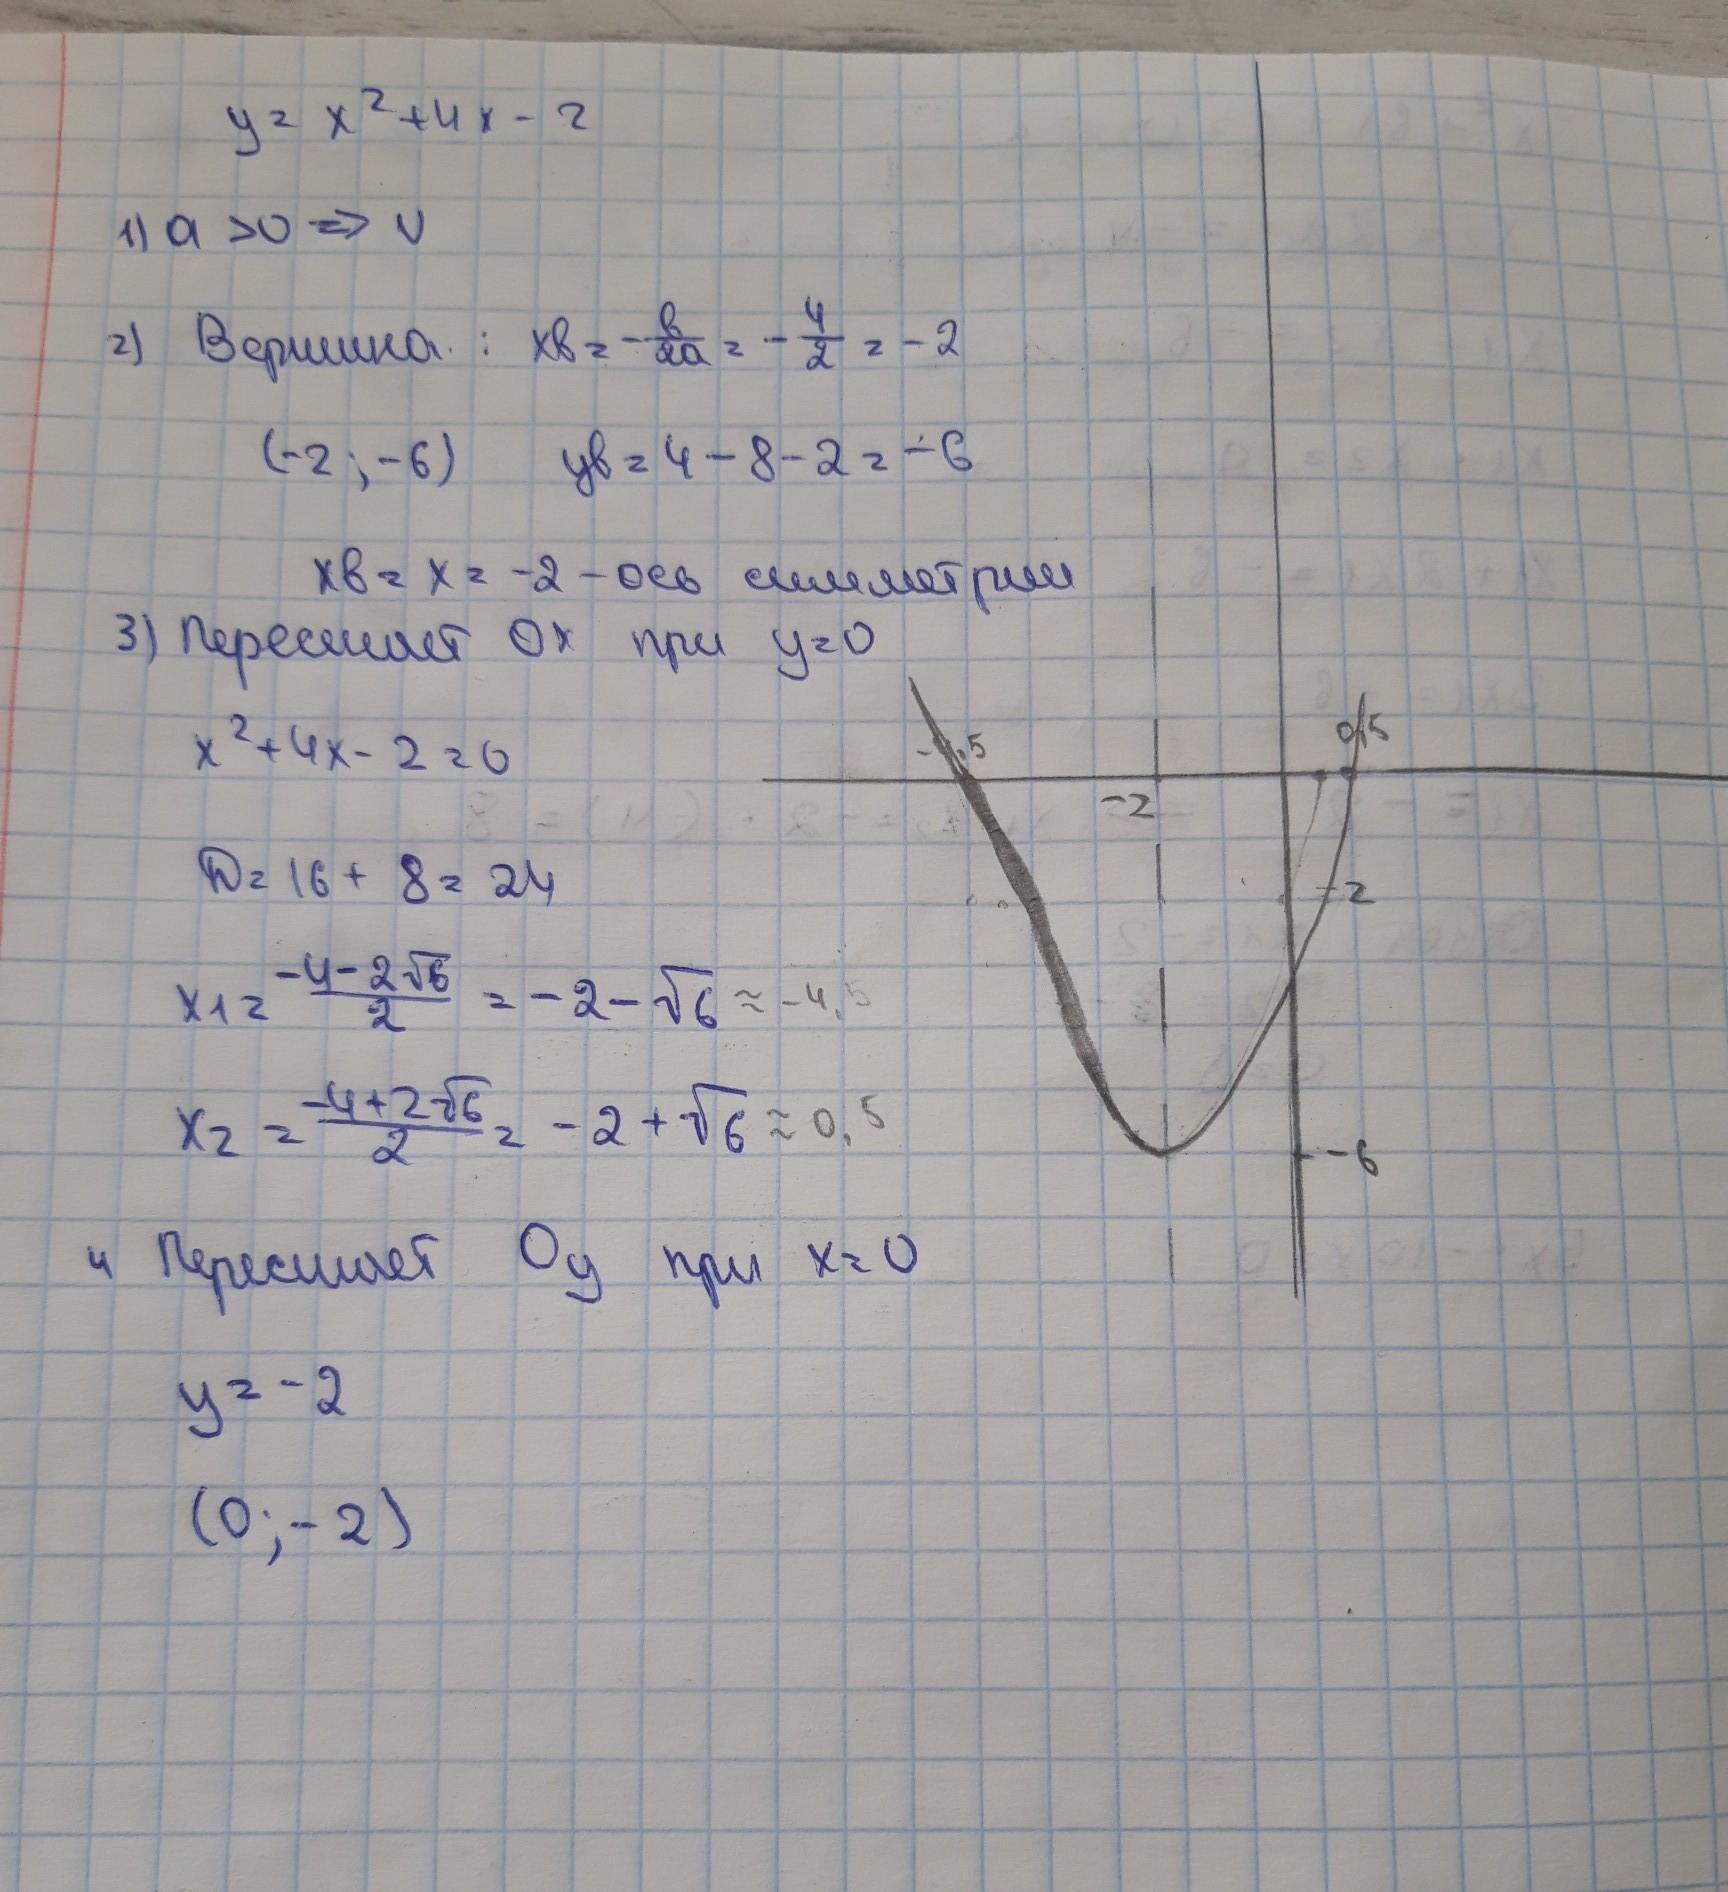 y = x² + 4x - 2
1) a > 0 => U
2) Вершина : xв = -в/2a = -4/2 = -2
(-2; -6) yв = 4 - 8 - 2 = -6
xв = x = -2 - ось симметрии
3) Пересекает Ox при y=0
x² + 4x - 2 = 0
D = 16 + 8 = 24
x1 = (-4 - 2√6)/2 = -2 - √6 ≈ -4,5
x2 = (-4 + 2√6)/2 = -2 + √6 ≈ 0,5
4 Пересекает Oy при x=0
y = -2
(0; -2)
-4,5
0,5
-2
-2
-6